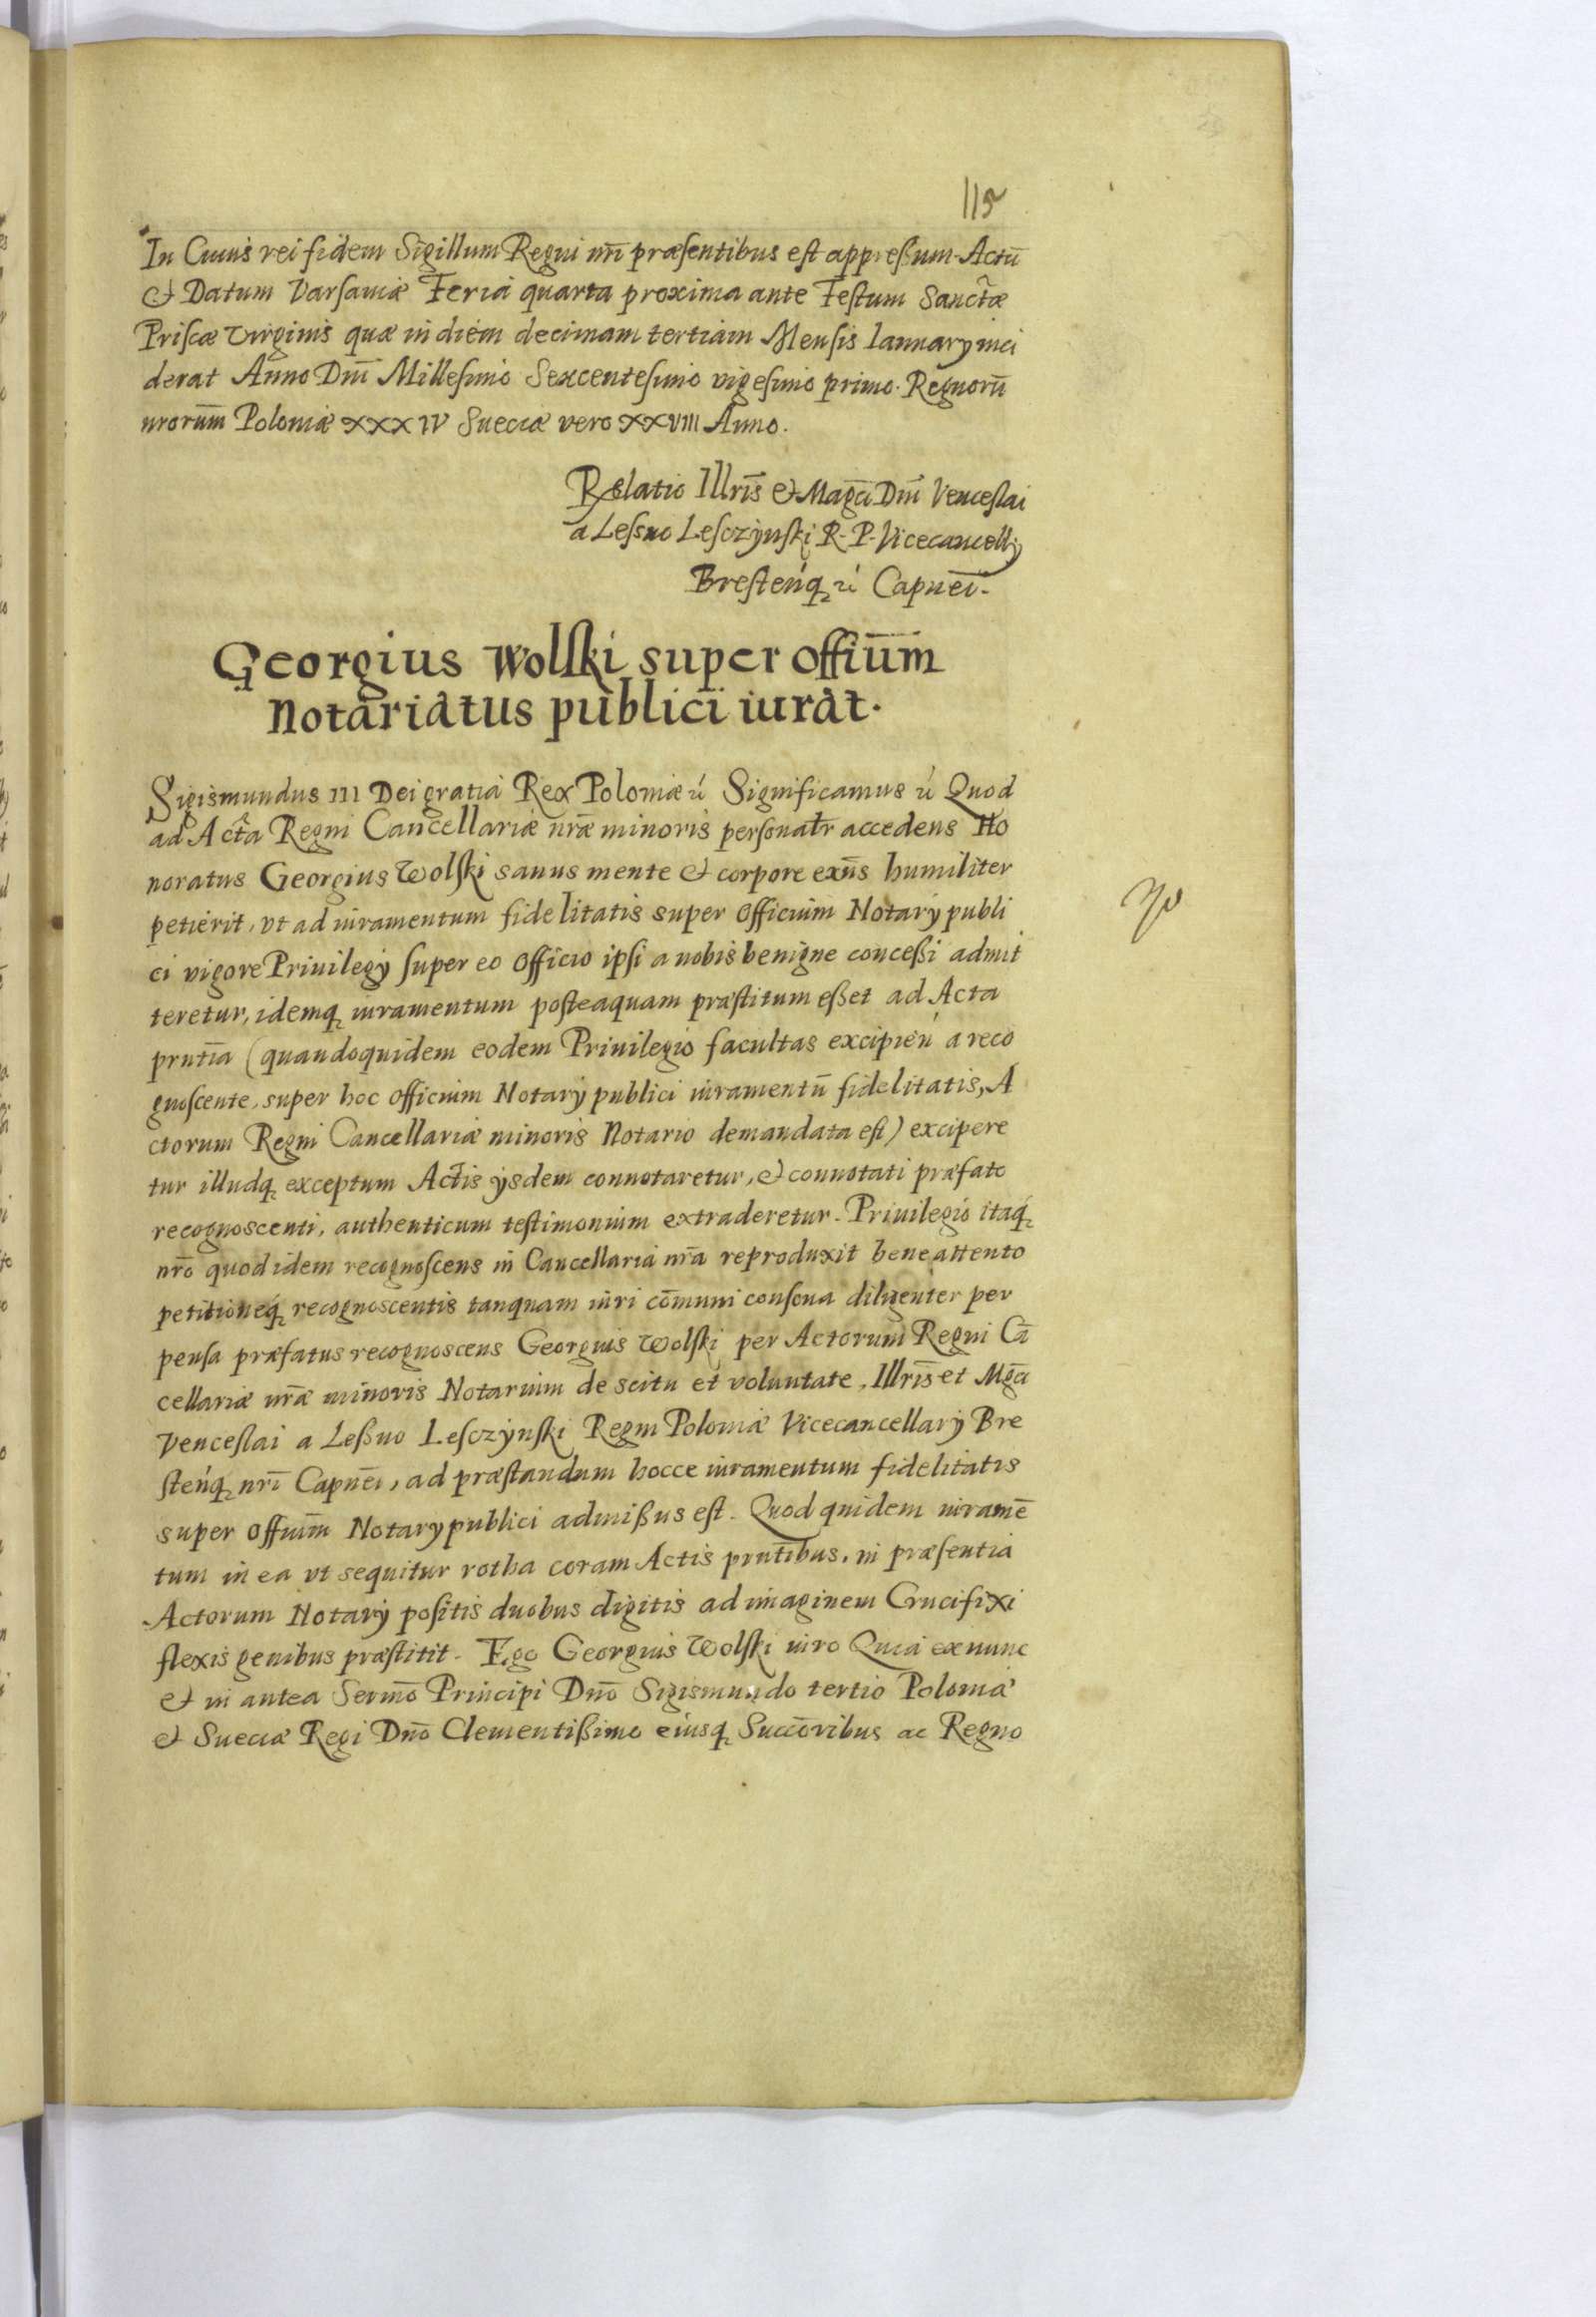 115
In Cuius rei fidem Sigillum Regni nrī præsentibus est appressum. Actū
et Datum Varsaviæ Feria quarta proxima ante Festum Sanctæ
Priscæ Virginis quæ in diem decimam tertiam Mensis Ianuarÿ inci
derat Anno Dnī Millesimo Sexcentesimo vigesimo primo. Regnorū
nrorūm Poloniæ XXXIV Sueciæ vero XXVIII Anno.
Relatio Illris̄ et Magcī Dnī Venceslai
a Lessno Lesczÿnski R. P. Vicecancellÿ
Brestenq ꝛć Capnei.̄
Georgius Wolski super offiūm
Notariatus publici iurat.
Sigismundus III Dei gratia Rex Poloniæ ꝛć Significamus ꝛć Quod
ad Acta Regni Cancellariæ nrǣ minoris personalr̄ accedens Ho
noratus Georgius Wolski sanus mente et corpore exn̄s humiliter
petierit, vt ad iuramentum fidelitatis super officium Notarÿ publi
ci vigore Priuilegÿ super eo officio ipsi a nobis benigne concessi admit
teretur, idemq iuramentum posteaquam præstitum esset ad Acta
prntīa (quandoquidem eodem Priuilegio facultas excipien a reco
gnoscente, super hoc officium Notarÿ publici iuramentū fidelitatis, A
ctorum Regni Cancellariæ minoris Notario demandata est) excipere
tur illudq exceptum Actis ÿsdem connotaretur, et connotati præfato
recognoscenti, authenticum testimonium extraderetur. Priuilegio itaq
nrō quod idem recognoscens in Cancellaria nrā reproduxit bene attento
petitioneq recognoscentis tanquam iuri cōmuni consona diligenter per
pensa præfatus recognoscens Georgius Wolski per Actorum Regni Cā
cellariæ nrǣ minoris Notarium de scitu et voluntate, Illris̄ et Mgcī
Venceslai a Lessno Lesczÿnski Regni Poloniæ Vicecancellarÿ Bre
stenq nrī Capnēi, ad præstandum hocce iuramentum fidelitatis
super offiūm Notarÿ publici admissus est. Quod quidem iuramē
tum in ea vt sequitur rotha coram Actis prntībus, in præsentia
Actorum Notarÿ positis duobus digitis ad imaginem Crucifixi
flexis genibus præstitit. Ego Georgius Wolski iuro Quia ex nunc
et in antea Sermō Principi Dnō Sigismundo tertio Poloniæ
et Sueciæ Regi Dnō Clementissimo eiusq Succōribus ac Regno